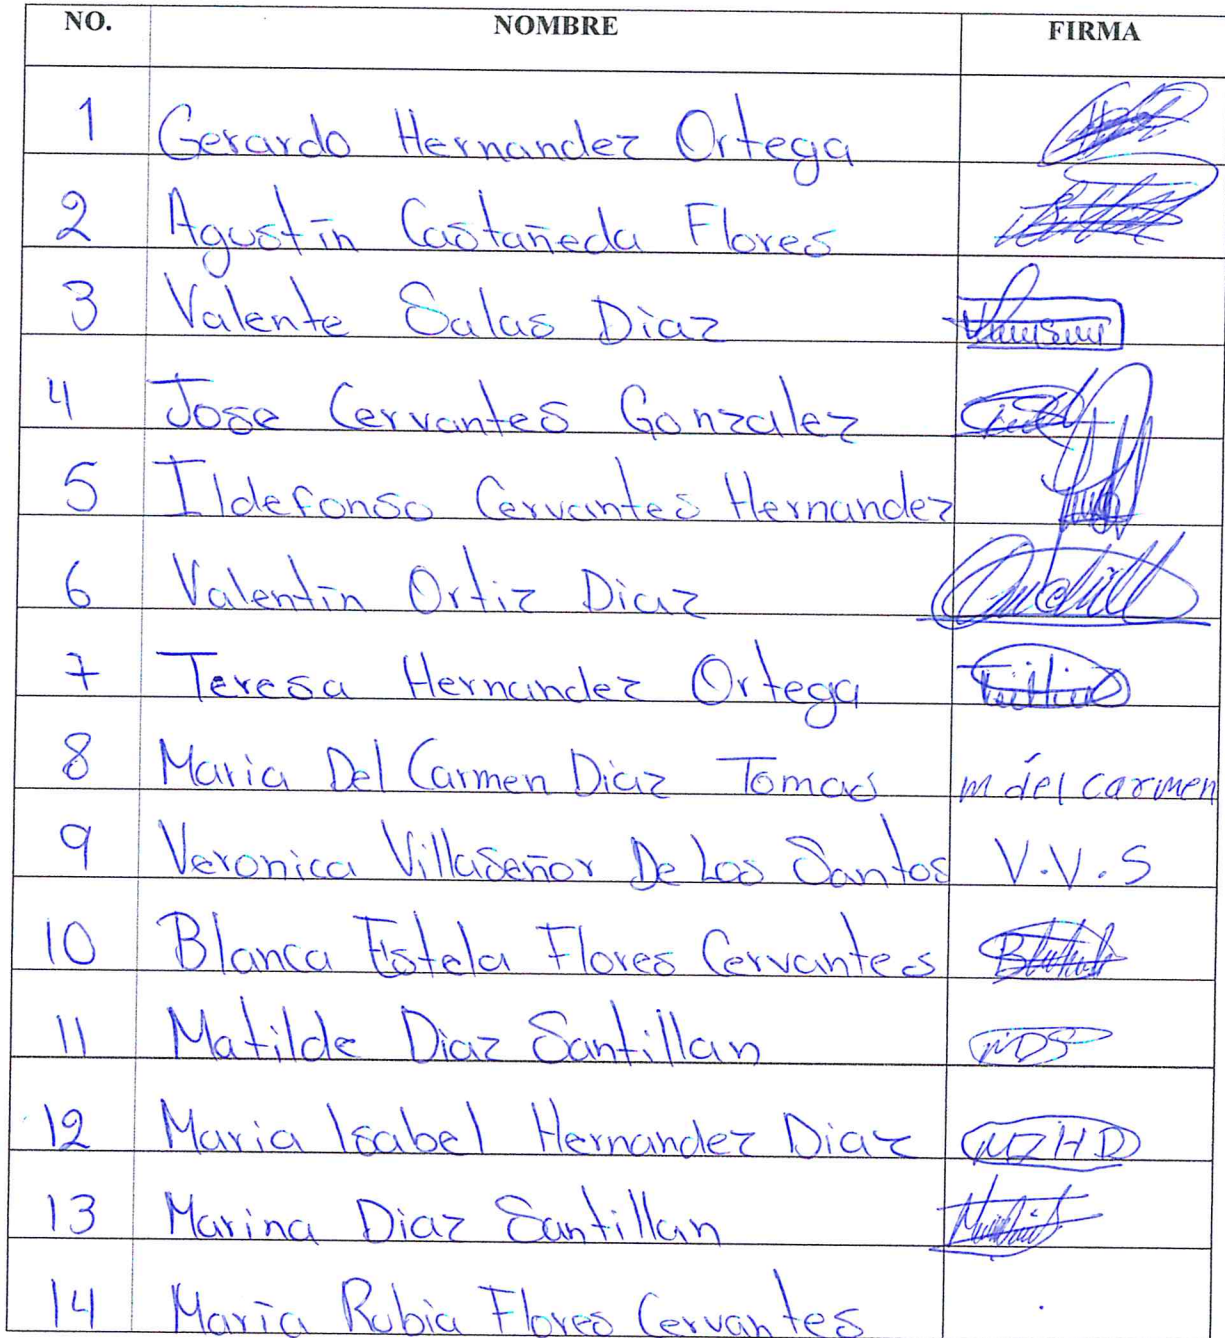 NO. NOMBRE FIRMA
1 Gerardo Hernandez Ortega
2 Agustín Castañeda Flores
3 Valente Salas Diaz
4 Jose Cervantes Gonzalez
5 Ildefonso Cervantes Hernandez
6 Valentín Ortiz Diaz
7 Teresa Hernandez Ortega
8 Maria Del Carmen Diaz Tomas m del carmen
9 Veronica Villaseñor De Los Santos V.V.S
10 Blanca Estela Flores Cervantes
11 Matilde Diaz Santillan MDS
12 Maria Isabel Hernandez Diaz MIHD
13 Marina Diaz Santillan
14 María Rubia Flores Cervantes